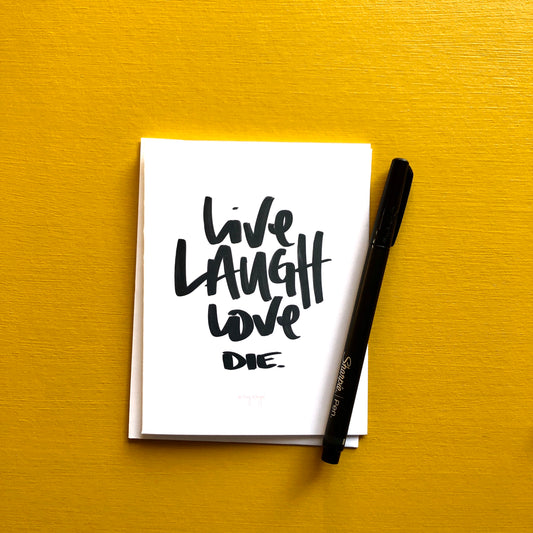 Live
LAUGH
Love
DIE.
Sharpie | Pen